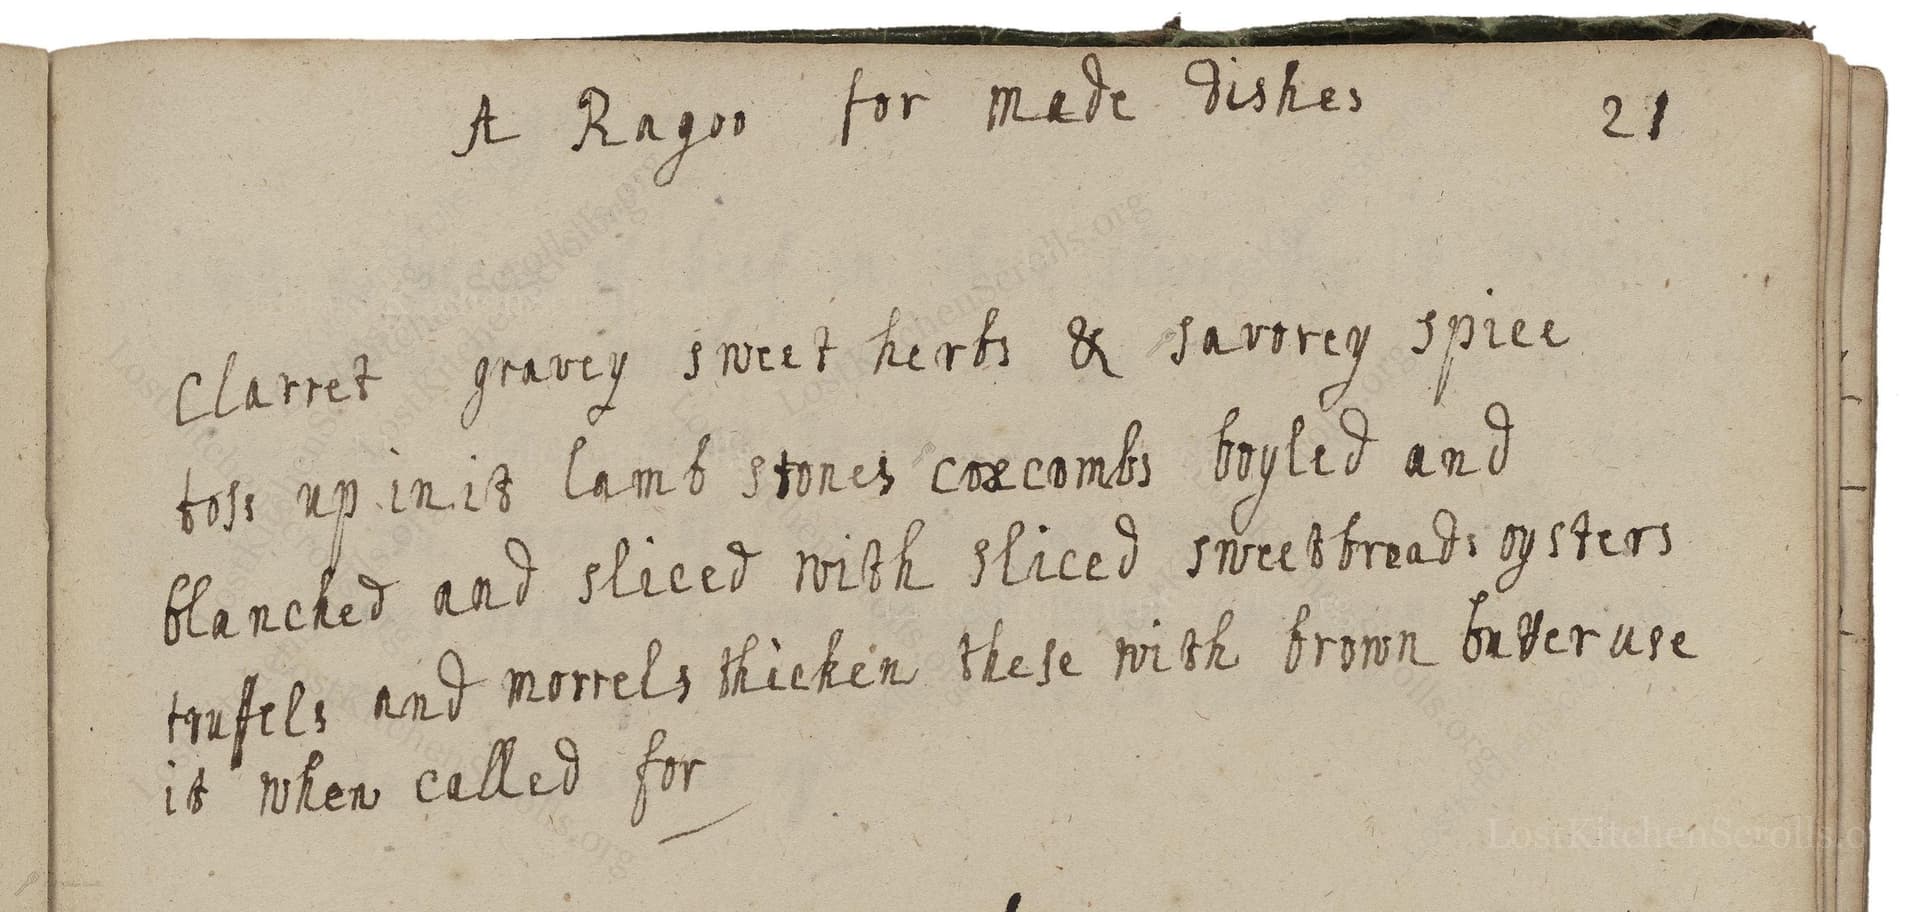 A Ragoo for made dishes 21
Clarret gravey sweet herbs & savorey spice
toss up in it lamb stones coxcombs boyled and
blanched and sliced with sliced sweetbreads oysters
truffels and morrels thicken these with brown butter use
it when called for
LostKitchenScrolls.o